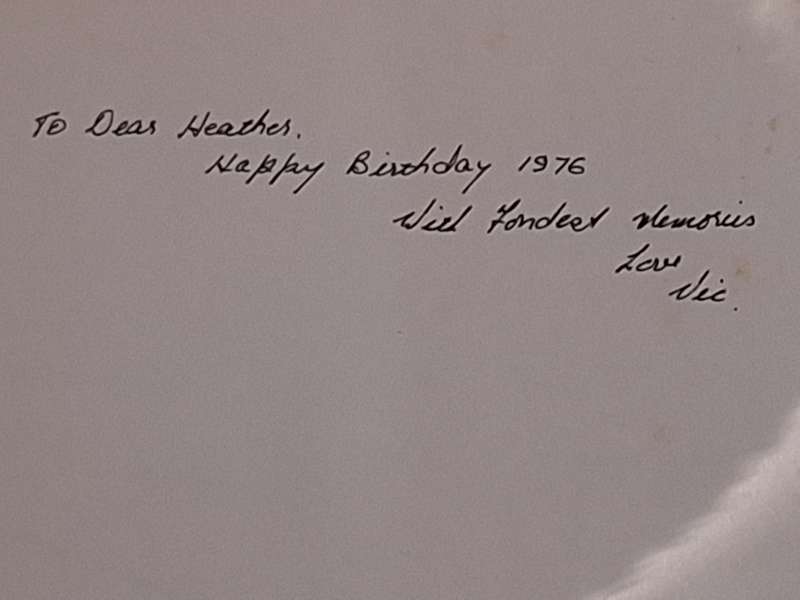 To Dear Heather.
Happy Birthday 1976
With Fondest Memories
Love
Vic.